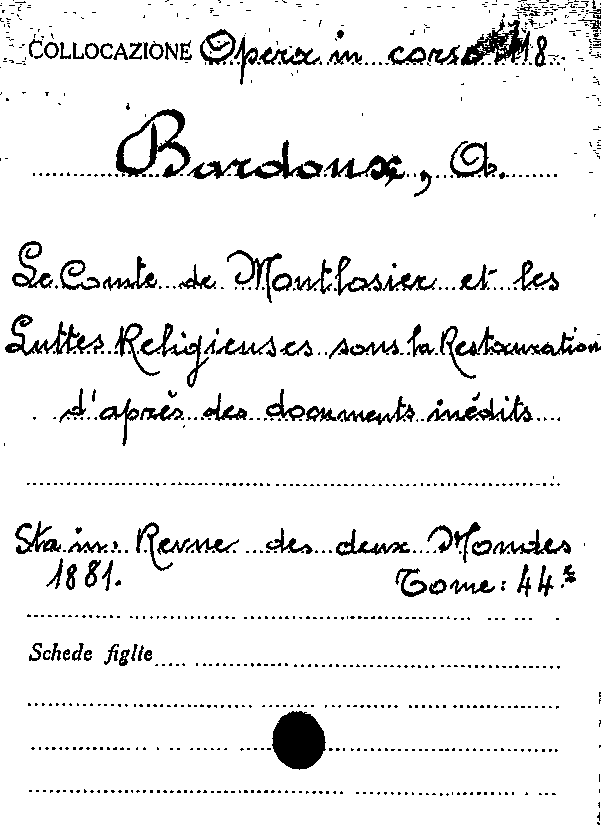 COLLOCAZIONE Opera in corso 118
Bardoux, A.
Le Comte de Montlosier et les
Luttes Religieuses sous la Restauration
d'après des documents inédits
Sta in: Revue des deux Mondes
1881. Tome: 44.
Schede figlie